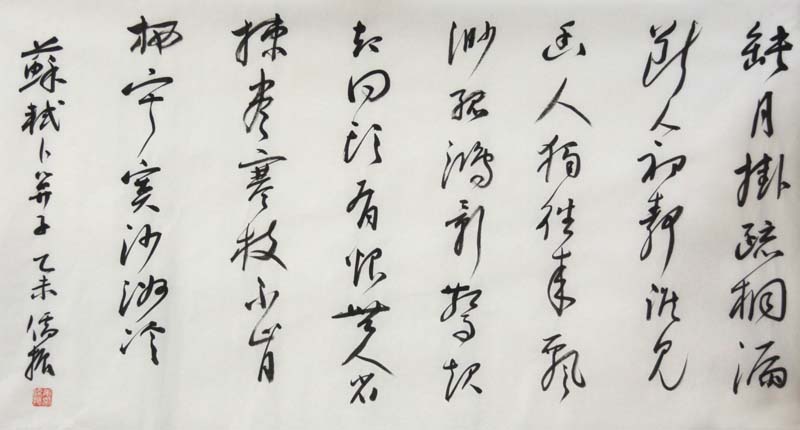 缺月掛疏桐漏
斷人初靜誰見
幽人獨往來飄
渺孤鴻影驚起
却回頭有恨無人省
揀盡寒枝不肯
栖寂寞沙洲冷
蘇軾卜算子 乙未 儒振